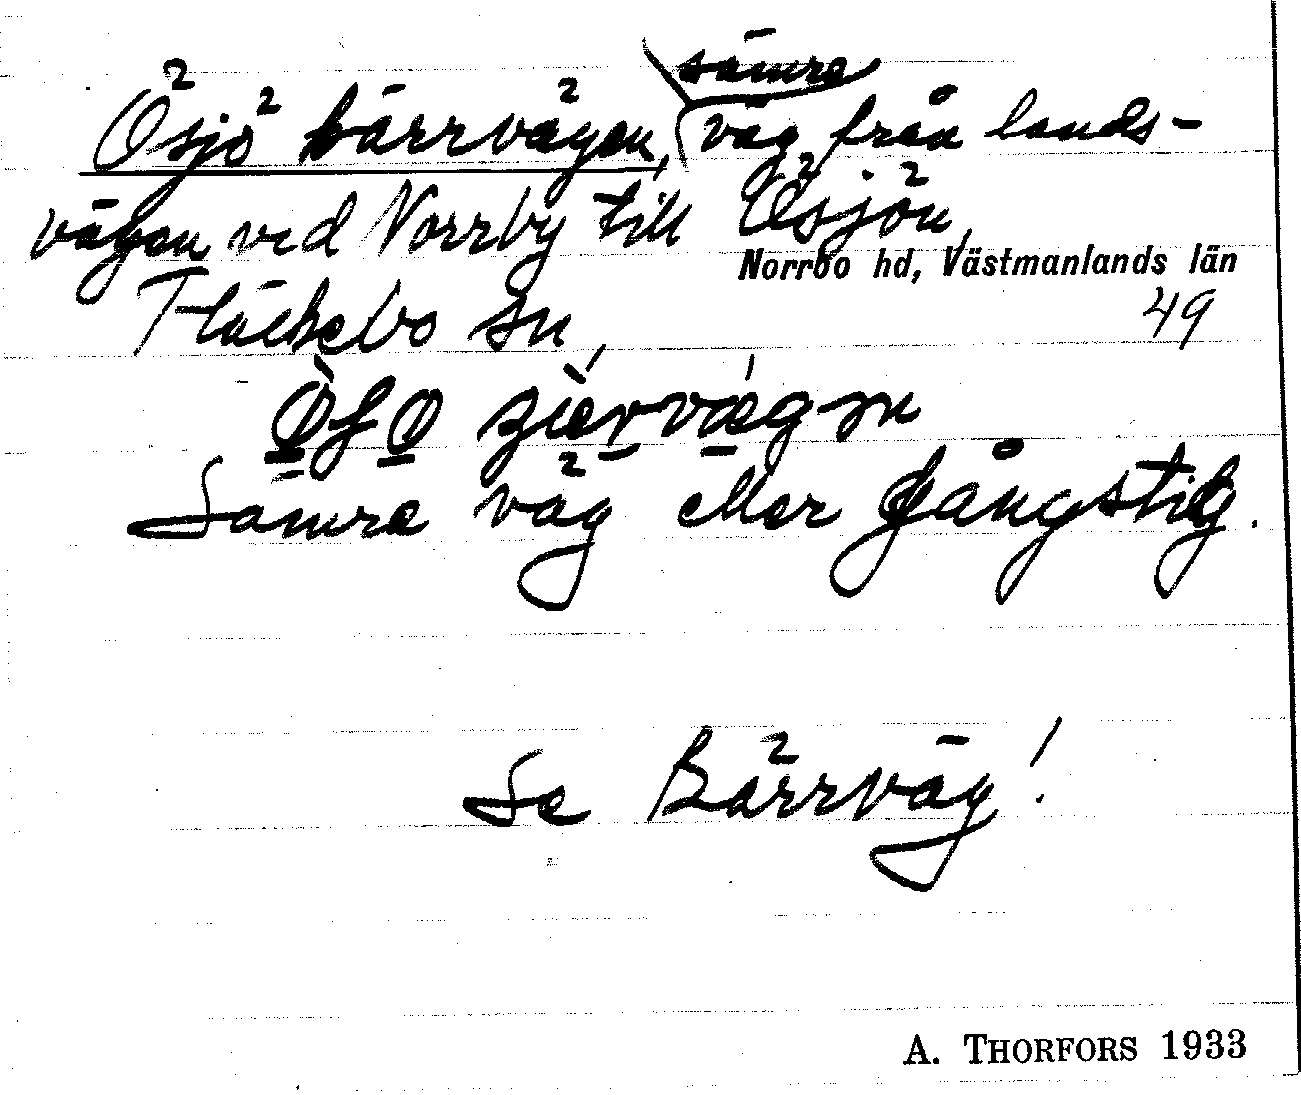 sämre
Ösjö bärrvägen, väg från lands-
vägen vid Norrby till Ösjön,
Norrbo hd, Västmanlands län
Fläckebo sn, 49
Sämre väg eller gångstig.
Se Bärrväg!
A. THORFORS 1933